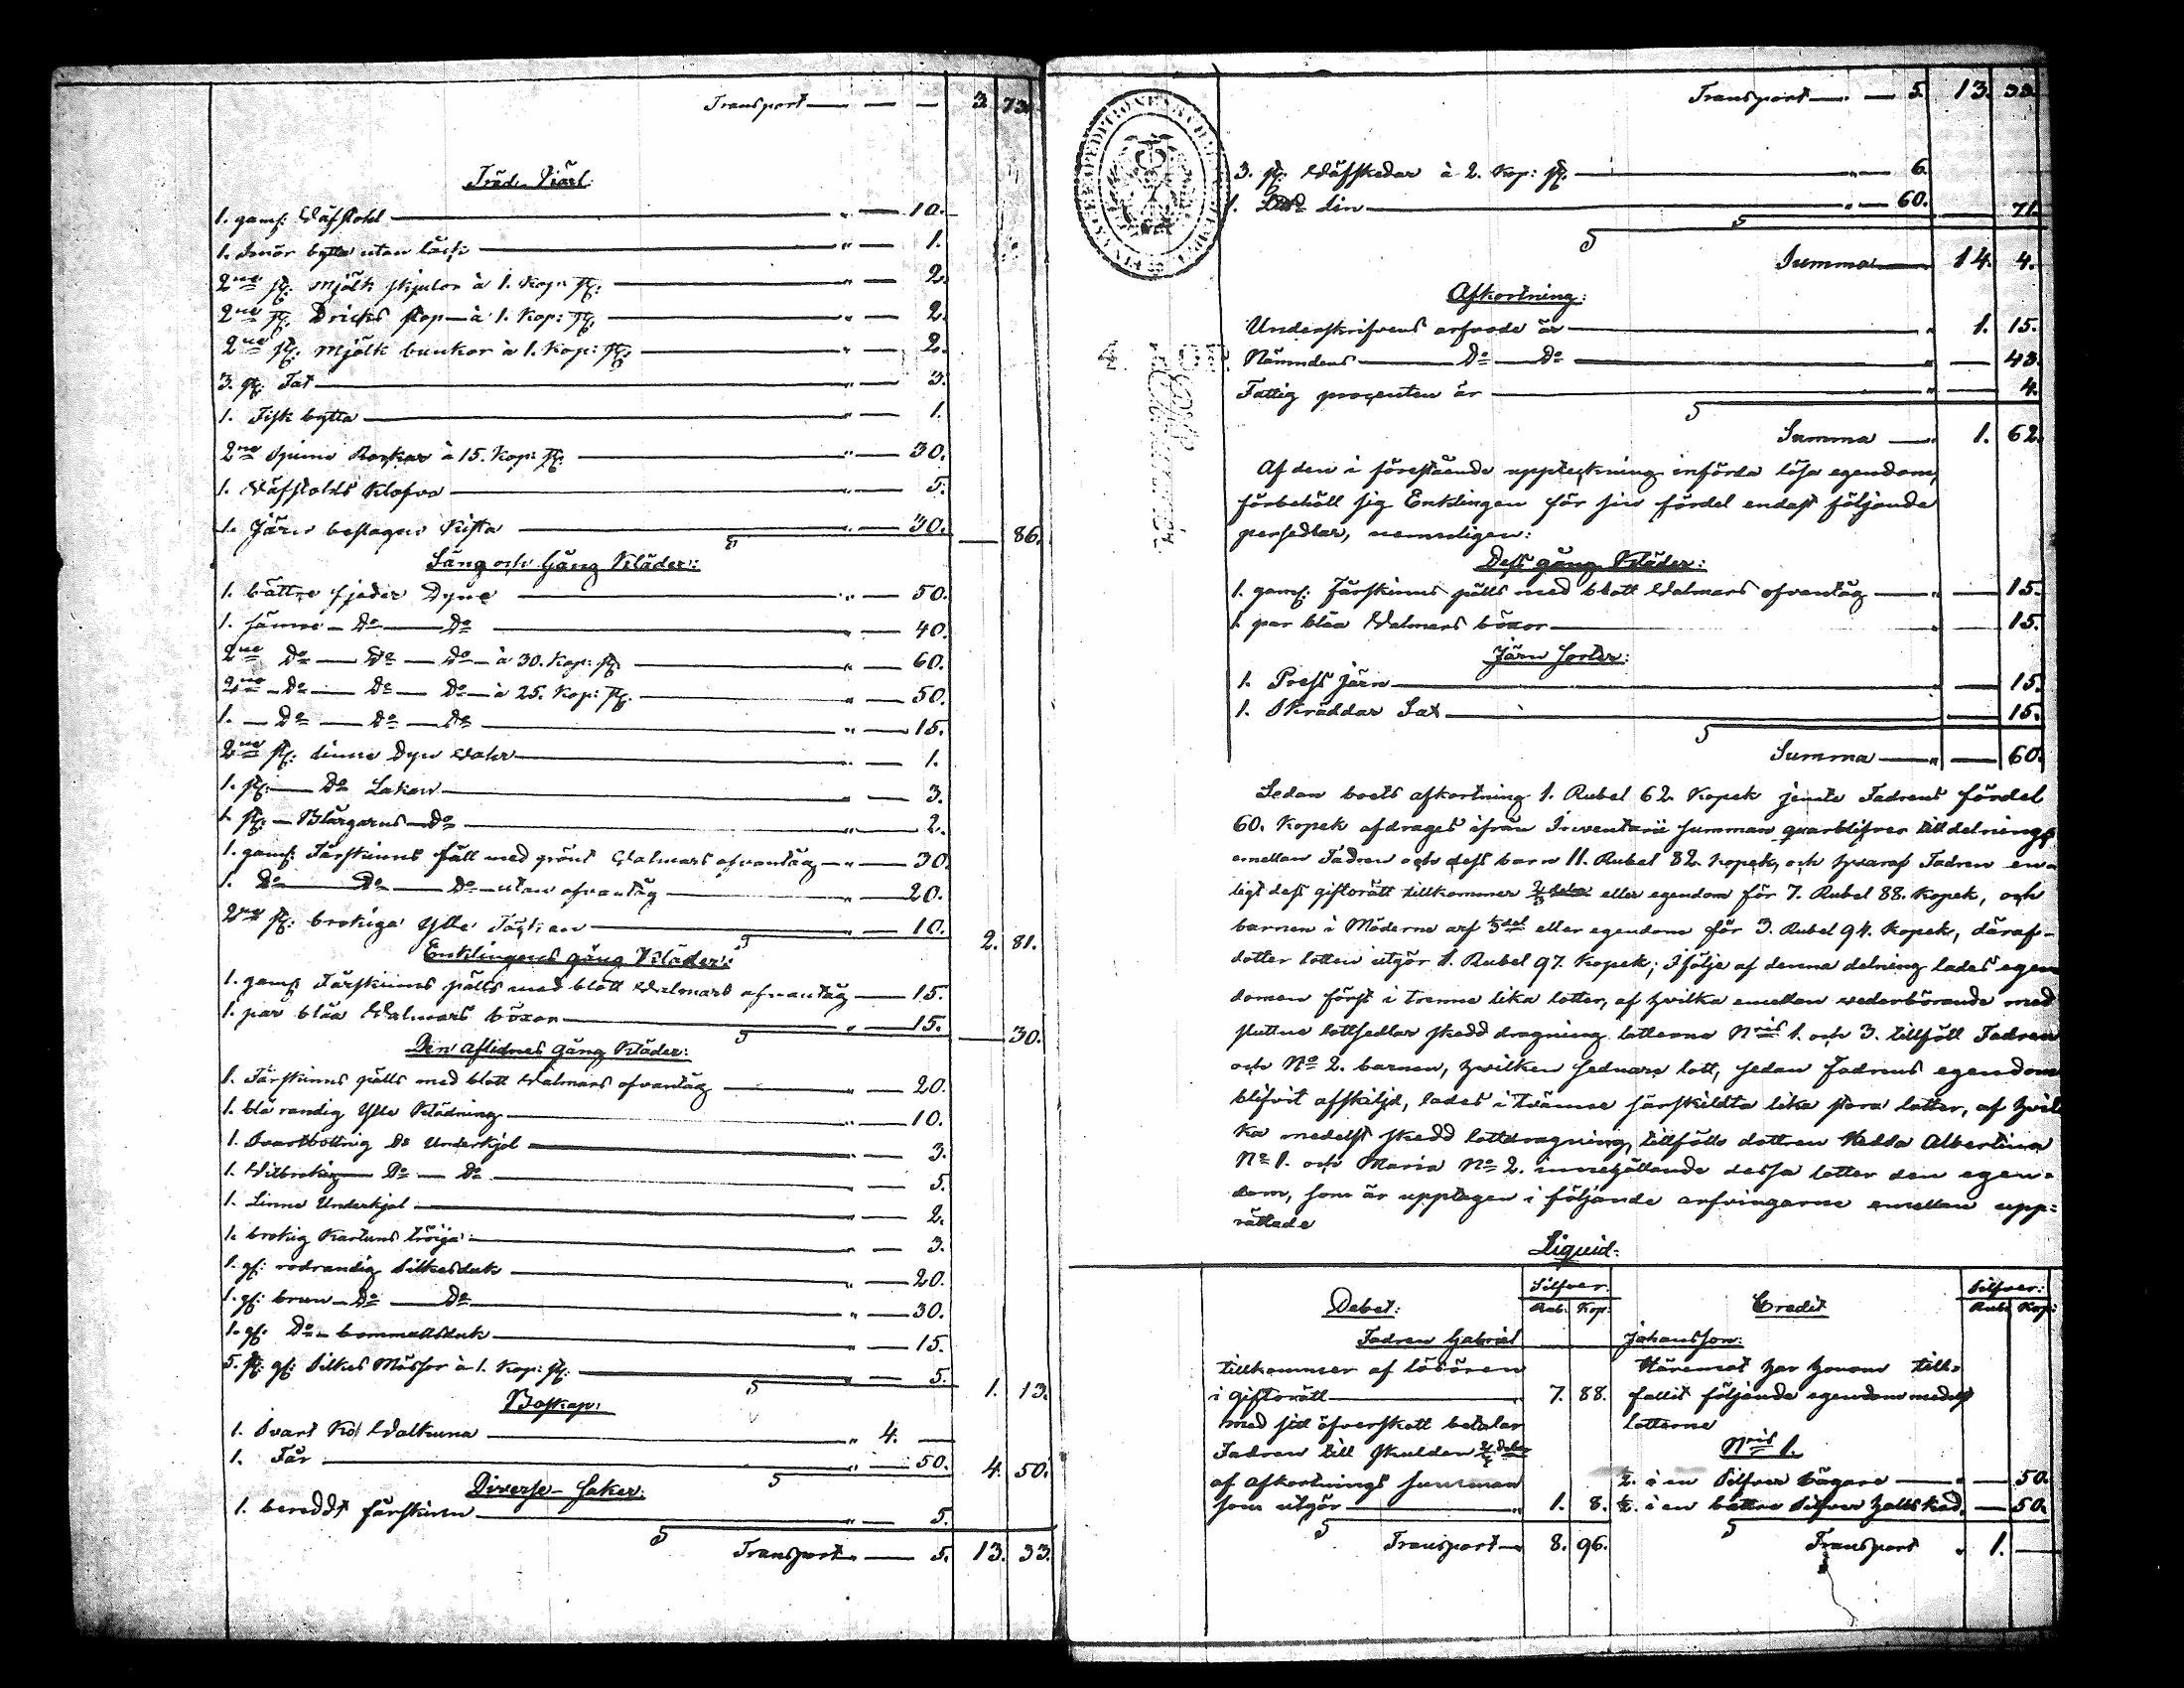 Transport — — — 3. 73.
Träd Kiärl:
1. gamf: Wäfstohl — " — 10.
1. Smör bytta utan låck — " — 1.
2ne st: mjölk stjulor à 1. Kop: st: — " — 2.
2ne st: Dricks stop — à 1. Kop: st: — " — 2.
2ne st: mjölk bunkor à 1. Kop: st: — " — 2.
3. st: Fat — " — 3.
1. Fisk bytta — " — 1.
2ne Spinn Råckar à 15. Kop: st: — " — 30.
1. Wäfstolds Klofva — " — 5.
1. Järn beslagen Kista — " — 30. — 86.
Säng och Gång Kläder:
1. bättre fjäder Dyna — " — 50.
1. sämre — Do — Do — " — 40.
2ne Do — Do — Do — à 30. Kop: st: — " — 60.
2ne Do — Do — Do — à 25. Kop: st: — " — 50.
1. — Do — Do — Do — " — 15.
2ne st: linne Dyn Wahr — " — 1.
1. st: — Do Lakan — " — 3.
1. st: — Blårgarns — Do — " — 2.
1. gamf: Fårskinns fäll med grönt Walmars ofvantäg — " — 30.
1. Do — Do — Do — utan ofvantäg — 20.
2ne st: brokiga Ylle Täcken — " — 10. 2. 81.
Enklingens gång Kläder:
1. gamf Fårskinns pälts med blått Walmars ofvantäg — 15.
1. par blåa Walmars böxor — " — 15. — 30.
Den aflidnes Gång Kläder:
1. Fårskinns pälts med blått Walmars ofvantäg — " — 20.
1. blå randig Ylle Klädning — " — 10.
1. Svartbottnig Do Underkjol — " — 3.
1. Witbrokig — Do — Do — 5.
1. Linne Underkjol — " — 2.
1. brokig Kartuns tröija — " — 3.
1. gf: rödrandig Silkesduk — " — 20.
1. gf: brun — Do — Do — " — 30.
1. gf: Do — bommullsduk — " — 15.
5. st: gf: Silkes Mössor à 1. Kop: st: — " — 5. 1. 13.
Boskap:
1. Svart Ko Walkuna — " 4. —
1. Får — " — 50. 4. 50.
Diverse Saker:
1. bereddt fårskinn — " — 5.
Transport — " — 5. 13. 33.
Transport — " — 5. 13. 33.
3. st: Wäfskedar à 2. Kop: st: — " — 6.
1. Lin — " — 60. — 71.
Summa — 14. 4.
Afkortning:
Underskrifvens arfvode är — " 1. 15.
Nämndens — Do — Do — " — 43.
Fattig procenten är — " — 4.
Summa — " 1. 62.
Af den i förestående uppteckning införda lösa egendom,
förbehöll sig Enklingen för sin fördel endast följande
persedlar, nemnligen:
Dess gång Kläder:
1. gamf: Fårskinns pälts med blått Walmars ofvantäg — " — 15.
1. par blåa Walmars böxor — " — 15.
Järn Sorter:
1. Press järn — " — 15.
1. Skräddar Sax — " — 15.
Summa — " — 60.
Sedan boets afkortning 1. Rubel 62. Kopek jemte Fadrens fördel
60. Kopek afdrages ifrån Inventarii summan qvarblifver till delnings
emellan Fadren och dess barn 11. Rubel 82. Kopek, och hvaraf Fadren en-
ligt dess giftorätt tillkommer 2/3 delar eller egendom för 7. Rubel 88. Kopek, och
barnen i Möderne arf 1/3 del eller egendom för 3. Rubel 94. Kopek, däraf
dotter lotten utgör 1. Rubel 97. Kopek; I följe af denna delning lades egen
domen först i trenne lika lotter, af hvilka emellan vederbörande med
slutne lottsedlar skedd dragning lotterna Nris 1. och 3. tillföll Fadren
och No 2. barnen, hvilken sednare lott, sedan Fadrens egendom
blifvit afskiljd, lades i tvänne särskildta lika stora lotter, af hvil
ka medelst skedd lottdragning, tillfölls dottren Hedda Albertina
No 1. och Maria No 2. innehållande dessa lotter den egen-
dom, som är upptagen i följande arfvingarne emellan upp-
rättade
Liquid:
Debet: Silfver: Rub: Kop: Credit Silfver: Rub: Kop:
Fadren Gabriel — Johansson:
tillkommer af lösören
i giftorätt — " 7. 88.
med sitt öfverskott betalar
Fadren till skulden 2/3 delar
af afkortnings summan
som utgör — " 1. 8.
Transport — " 8. 96.
Häremot har honom till-
fallit följande egendom medelst
lotterne
Nris 1.
1/2. i en Silfver bägare — " — 50.
1/2. i en bättre Silfver halsked. — 50.
Transport " 1. —